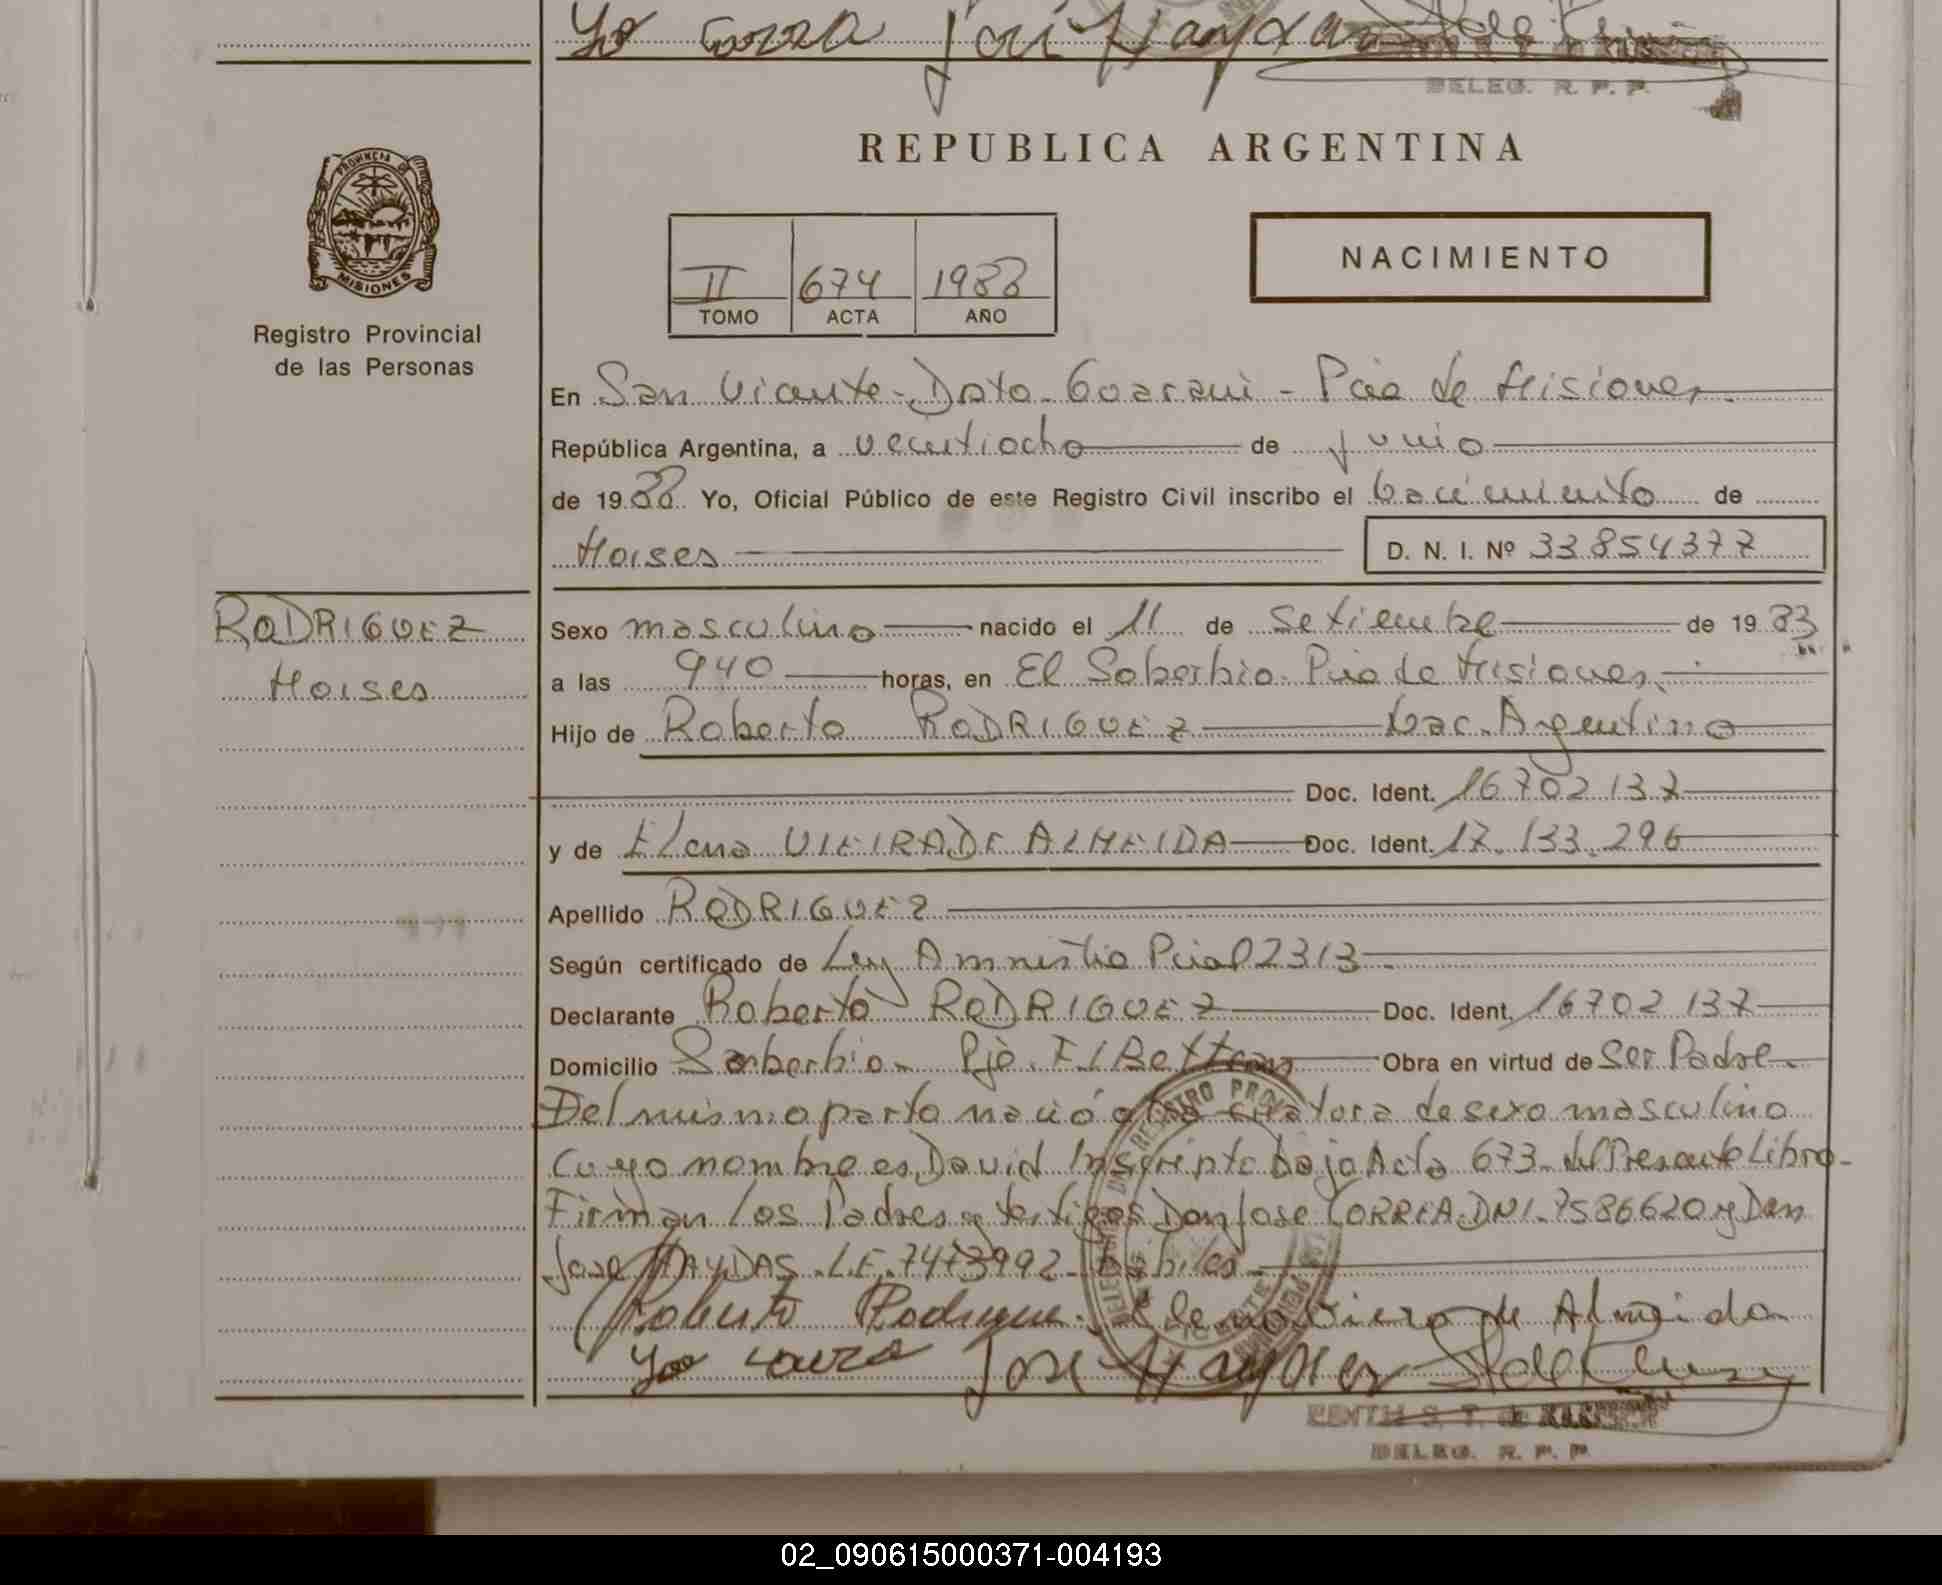 DELEG. R. P. P.
REPUBLICA ARGENTINA
PROVINCIA DE
MISIONES
Registro Provincial
de las Personas
II 674 1988
TOMO ACTA AÑO
NACIMIENTO
En San Vicente - Dpto. Guarani - Pcia de Misiones.
República Argentina, a veintiocho de junio
de 1988 Yo, Oficial Público de este Registro Civil inscribo el Nacimiento de
Moises D. N. I. Nº 33854377
RODRIGUEZ
Moises
Sexo masculino nacido el 11 de Setiembre de 1983
a las 940 horas, en El Soberbio. Pcia de Misiones.
Hijo de Roberto RODRIGUEZ Nac. Argentino
Doc. Ident. 16702137
y de Elena VIEIRA DE ALMEIDA Doc. Ident. 17.133.296
Apellido RODRIGUEZ
Según certificado de Ley Amnistia Pcial 2313
Declarante Roberto RODRIGUEZ Doc. Ident. 16702137
Domicilio Soberbio - Pje. Obra en virtud de Ser Padre
Del mismo parto nació otra criatura de sexo masculino
Cuyo nombre es David Inscripto bajo Acta 673 del Presente Libro -
Firman los Padres y testigos Don Jose CORREA. DNI. 7586620 y Don
Jose HAYDAS. L.E. 7473992 - habiles -
Roberto Rodriguez Elena Viera de Almeida
Jose
DELEG. R. P. P.
02_090615000371-004193